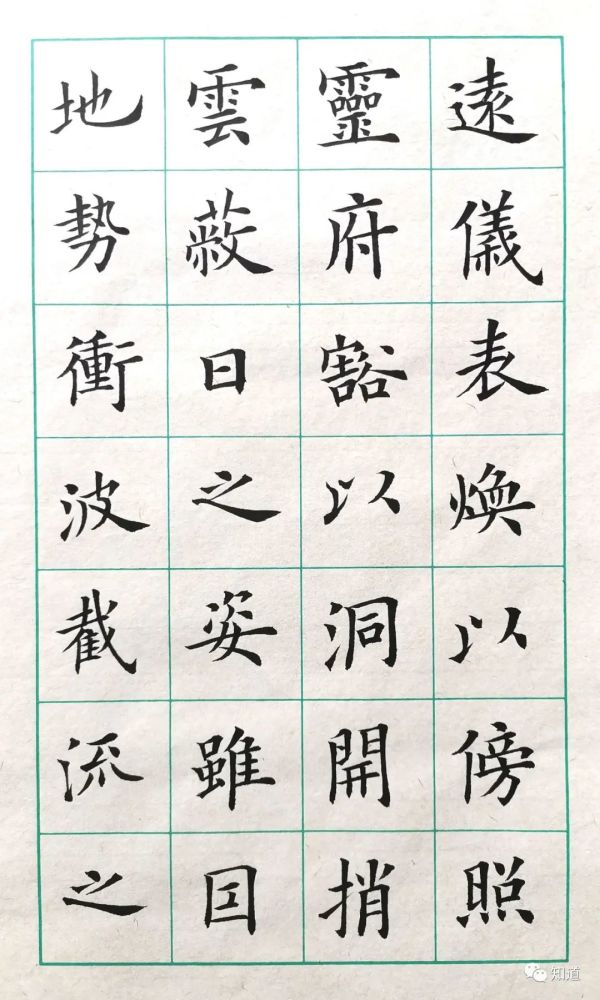 遠儀表煥以傍照
靈府豁以洞開捎
雲蔽日之姿雖因
地勢衝波截流之
知道